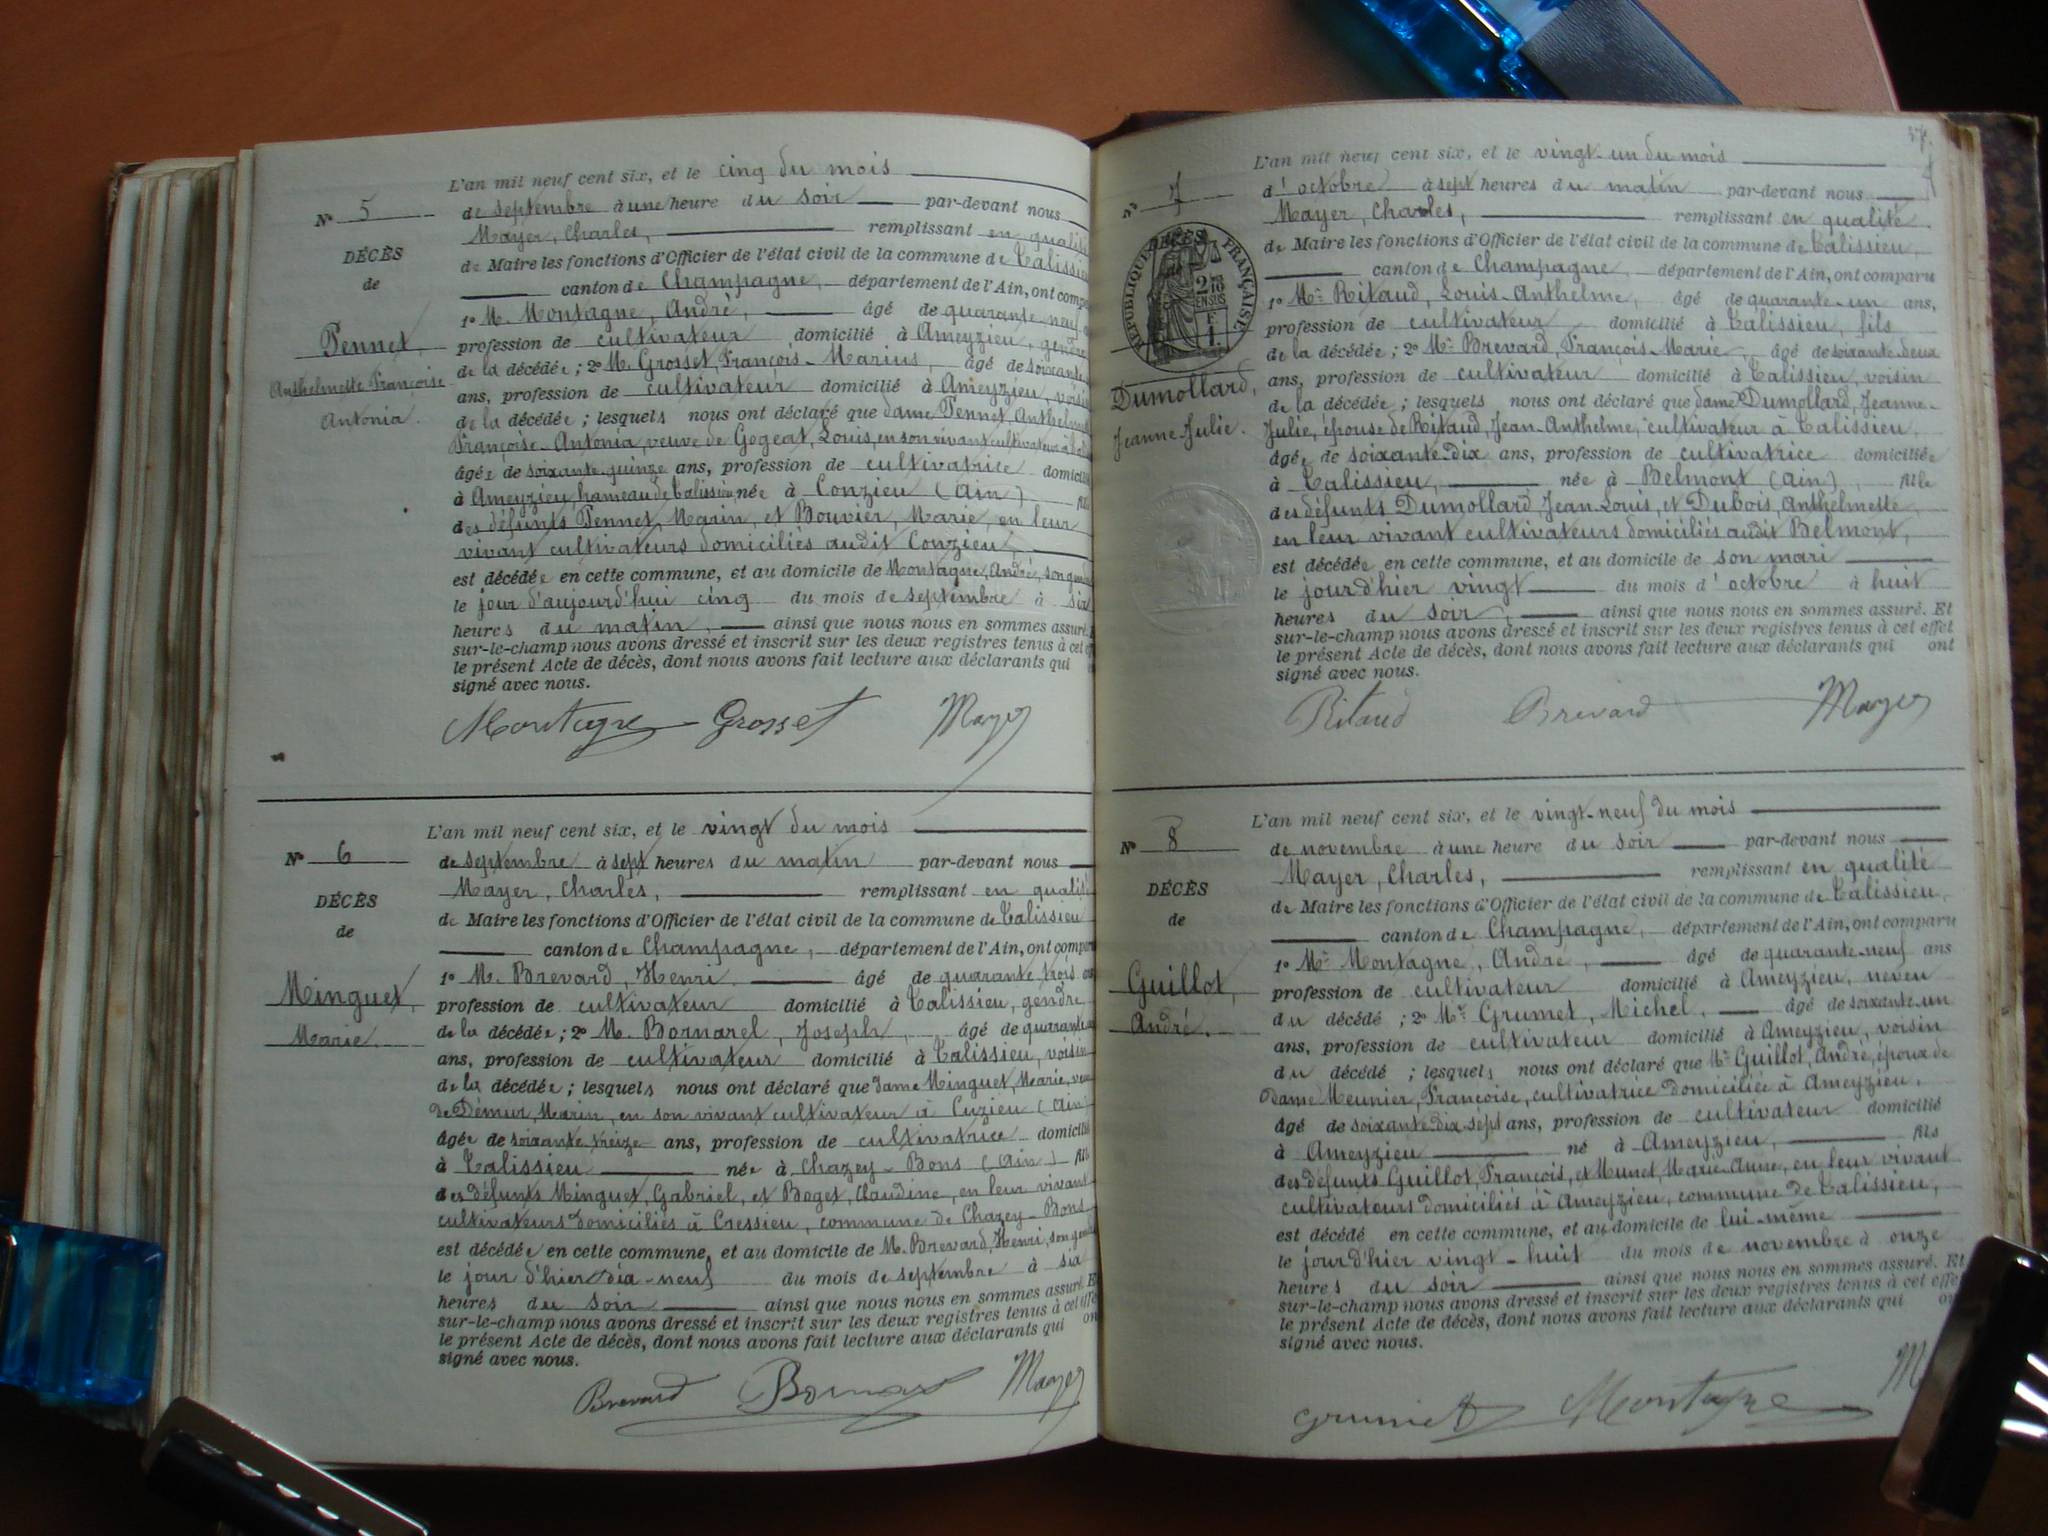 L'an mil neuf cent six, et le cinq du mois
Nº 5
de septembre à une heure du soir par-devant nous
Mayer, Charles, remplissant en qualité
DÉCÈS
de Maire les fonctions d'Officier de l'état civil de la commune de Talissieu
de
canton de Champagne, département de l'Ain, ont comparu
1º M. Montagne, André, âgé de quarante-neuf
Pennet,
profession de cultivateur domicilié à Ameyzieu, gendre
de la décédée; 2º M. Grosset, François-Marius, âgé de soixante
Anthelmette Françoise
ans, profession de cultivateur domicilié à Ameyzieu, voisin
Antonia.
de la décédée; lesquels nous ont déclaré que dame Pennet, Anthelmette
Françoise-Antonia, veuve de Gogeat, Louis, en son vivant cultivateur à
âgée de soixante-quinze ans, profession de cultivatrice domiciliée
à Ameyzieu, hameau de Talissieu, née à Conzieu (Ain) fille
des défunts Pennet, Marin, et Bouvier, Marie, en leur
vivant cultivateurs domiciliés audit Conzieu,
est décédée en cette commune, et au domicile de Montagne, André, son gendre
le jour d'aujourd'hui cinq du mois de septembre à six
heures du matin, ainsi que nous nous en sommes assuré. Et
sur-le-champ nous avons dressé et inscrit sur les deux registres tenus à cet effet
le présent Acte de décès, dont nous avons fait lecture aux déclarants qui
signé avec nous.
Montagne Grosset Mayer
L'an mil neuf cent six, et le vingt du mois
Nº 6
de septembre à sept heures du matin par-devant nous
Mayer, Charles, remplissant en qualité
DÉCÈS
de Maire les fonctions d'Officier de l'état civil de la commune de Talissieu
de
canton de Champagne, département de l'Ain, ont comparu
1º M. Brevard, Henri âgé de quarante-trois ans
Minguet,
profession de cultivateur domicilié à Talissieu, gendre
Marie.
de la décédée; 2º M. Bornarel, Joseph, âgé de quarante
ans, profession de cultivateur domicilié à Talissieu, voisin
de la décédée; lesquels nous ont déclaré que dame Minguet, Marie, veuve
de Démur, Marin, en son vivant cultivateur à Cuzieu (Ain)
âgée de soixante-treize ans, profession de cultivatrice domiciliée
à Talissieu née à Chazey-Bons (Ain) fille
des défunts Minguet, Gabriel, et Boget, Claudine, en leur vivant
cultivateurs domiciliés à Cressieu, commune de Chazey-Bons
est décédée en cette commune, et au domicile de M. Brevard, Henri, son gendre
le jour d'hier dix-neuf du mois de septembre à six
heures du soir ainsi que nous nous en sommes assuré. Et
sur-le-champ nous avons dressé et inscrit sur les deux registres tenus à cet effet
le présent Acte de décès, dont nous avons fait lecture aux déclarants qui on
signé avec nous.
Brevard Bornarel Mayer
37
L'an mil neuf cent six, et le vingt-un du mois
Nº 7
d'octobre à sept heures du matin par-devant nous
Mayer, Charles, remplissant en qualité
DÉCÈS
RÉPUBLIQUE FRANÇAISE
de Maire les fonctions d'Officier de l'état civil de la commune de Talissieu,
canton de Champagne, département de l'Ain, ont comparu
1º Mr Ritaud, Louis-Anthelme, âgé de quarante-un ans,
profession de cultivateur domicilié à Talissieu, fils
de la décédée; 2º Mr Brevard, François-Marie, âgé de soixante-deux
Dumollard,
ans, profession de cultivateur domicilié à Talissieu, voisin
de la décédée; lesquels nous ont déclaré que dame Dumollard, Jeanne-
Jeanne-Julie.
Julie, épouse de Ritaud, Jean-Anthelme, cultivateur à Talissieu,
âgée de soixante-dix ans, profession de cultivatrice domiciliée
à Talissieu, née à Belmont (Ain), fille
des défunts Dumollard, Jean-Louis, et Dubois, Anthelmette,
en leur vivant cultivateurs domiciliés audit Belmont,
est décédée en cette commune, et au domicile de son mari
le jour d'hier vingt du mois d'octobre à huit
heures du soir, ainsi que nous nous en sommes assuré. Et
sur-le-champ nous avons dressé et inscrit sur les deux registres tenus à cet effet
le présent Acte de décès, dont nous avons fait lecture aux déclarants qui ont
signé avec nous.
Ritaud Brevard Mayer
L'an mil neuf cent six, et le vingt-neuf du mois
Nº 8
de novembre à une heure du soir par-devant nous
Mayer, Charles, remplissant en qualité
DÉCÈS
de Maire les fonctions d'Officier de l'état civil de la commune de Talissieu,
de
canton de Champagne, département de l'Ain, ont comparu
1º Mr Montagne, André, âgé de quarante-neuf ans
Guillot,
profession de cultivateur domicilié à Ameyzieu, neveu
André.
du décédé; 2º Mr Grumet, Michel, âgé de soixante-un
ans, profession de cultivateur domicilié à Ameyzieu, voisin
du décédé; lesquels nous ont déclaré que Mr Guillot, André, époux de
dame Meunier, Françoise, cultivatrice domiciliée à Ameyzieu,
âgé de soixante-dix-sept ans, profession de cultivateur domicilié
à Ameyzieu né à Ameyzieu, fils
des défunts Guillot, François, et Munet, Marie-Anne, en leur vivant
cultivateurs domiciliés à Ameyzieu, commune de Talissieu,
est décédé en cette commune, et au domicile de lui-même
le jour d'hier vingt-huit du mois de novembre à onze
heures du soir ainsi que nous nous en sommes assuré. Et
sur-le-champ nous avons dressé et inscrit sur les deux registres tenus à cet effet
le présent Acte de décès, dont nous avons fait lecture aux déclarants qui on
signé avec nous.
Grumet Montagne M